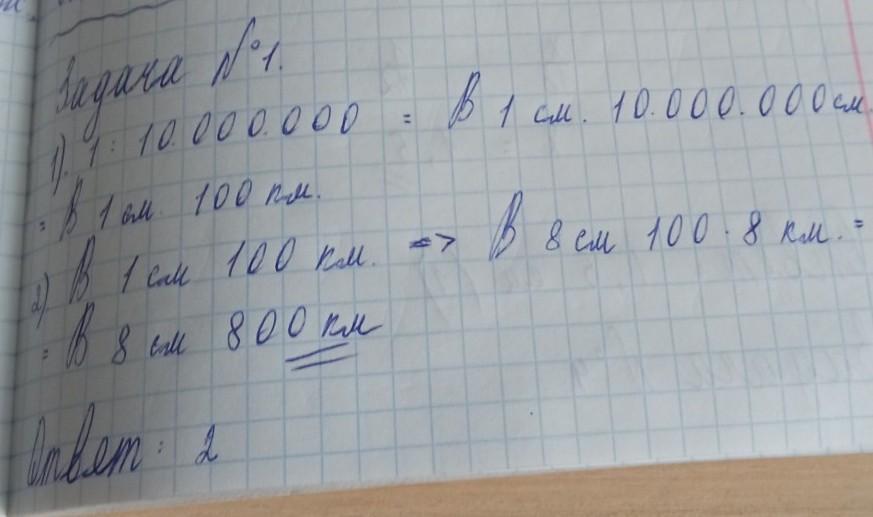 Задача №1.
1). 1 : 10.000.000 = В 1 см. 10.000.000см
= В 1 см. 100 км.
2) В 1 см 100 км. => В 8 см 100 · 8 км. =
= В 8 см 800 км
Ответ: 2